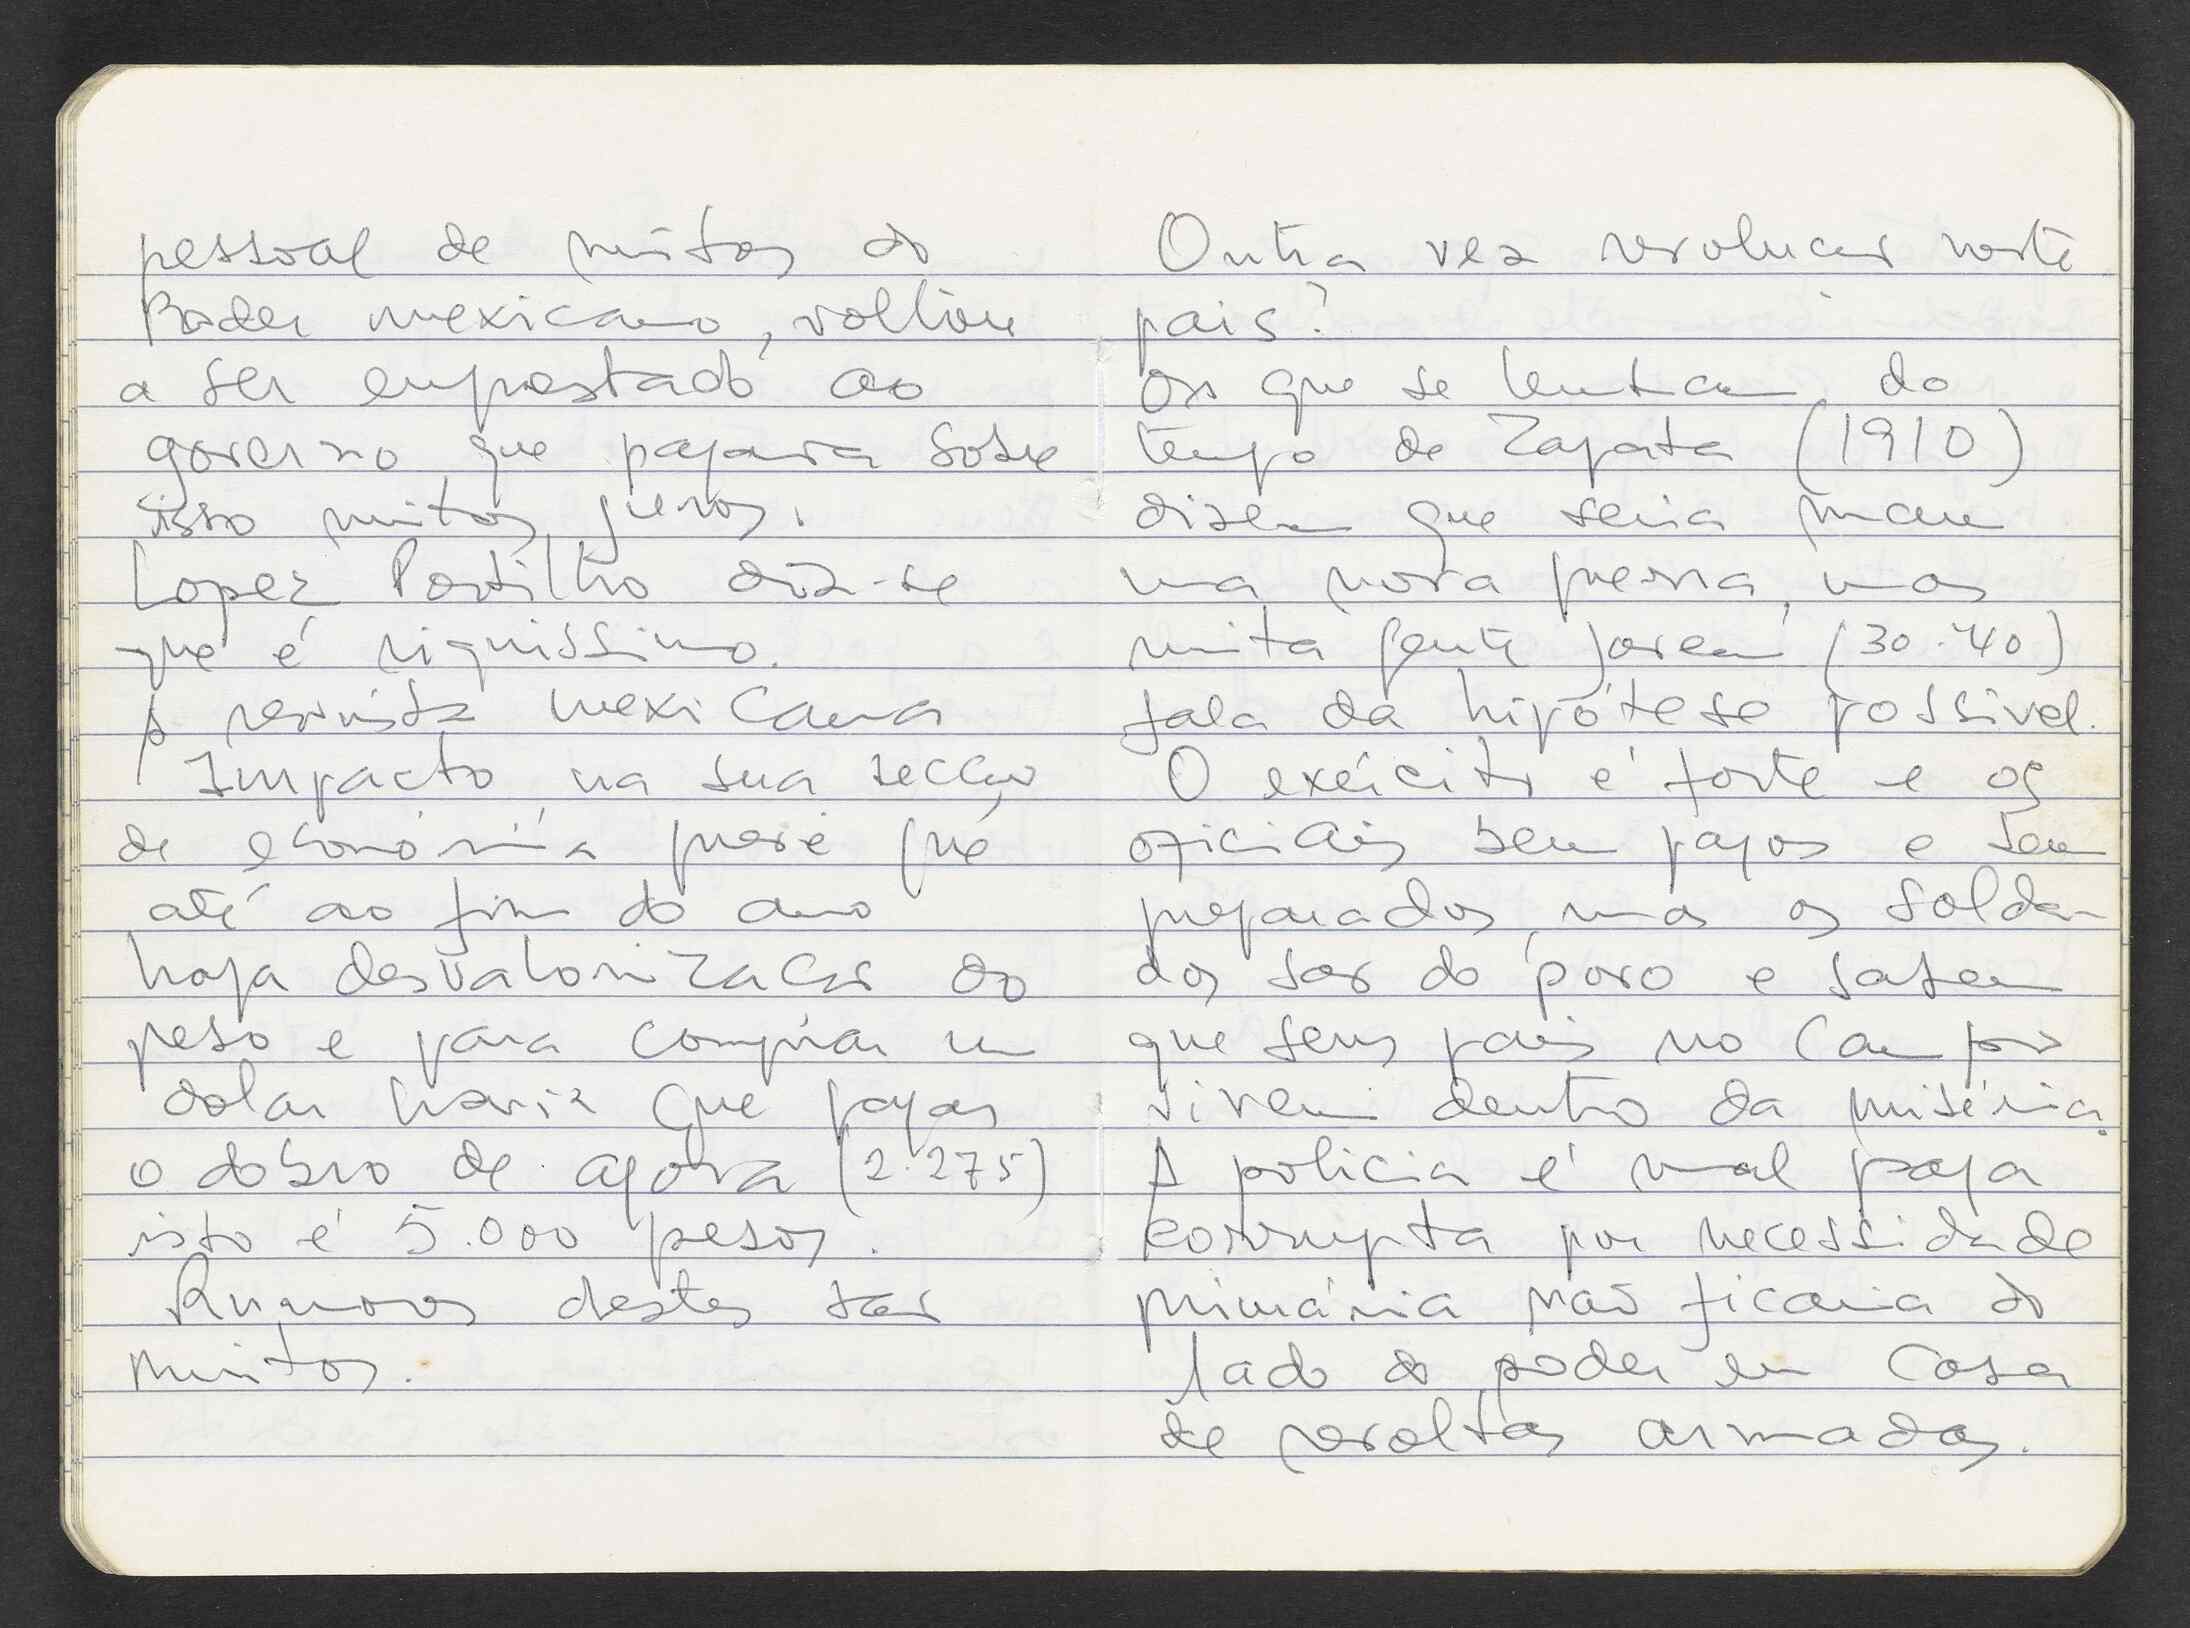 pessoal de muitos do
Poder mexicano, voltou
a ser emprestado ao
governo que pagava sobre
isso muitos juros.
Lopez Portilho diz-se
que é riquissimo.
A revista mexicana
Impacto na sua secção
de económia prevê que
até ao fim do ano
haja desvalorização do
peso e para comprar um
dolar havia que pagar
o dobro de agora (2.275)
isto é 5.000 pesos.
Rumores destes são
muitos.
Outra vez revolução neste
pais?
Os que se lembram do
tempo de Zapata (1910)
dizem que seria mau
uma nova guerra, mas
muita gente jovem (30-40)
fala da hipótese possivel.
O exército é forte e os
oficiais bem pagos e bem
preparados, mas os solda-
dos são do povo e sabem
que seus pais no campo
vivem dentro da miséria.
A policia é mal paga
corrupta por necessidade
primária não ficaria do
lado do poder em caso
de revoltas armadas.